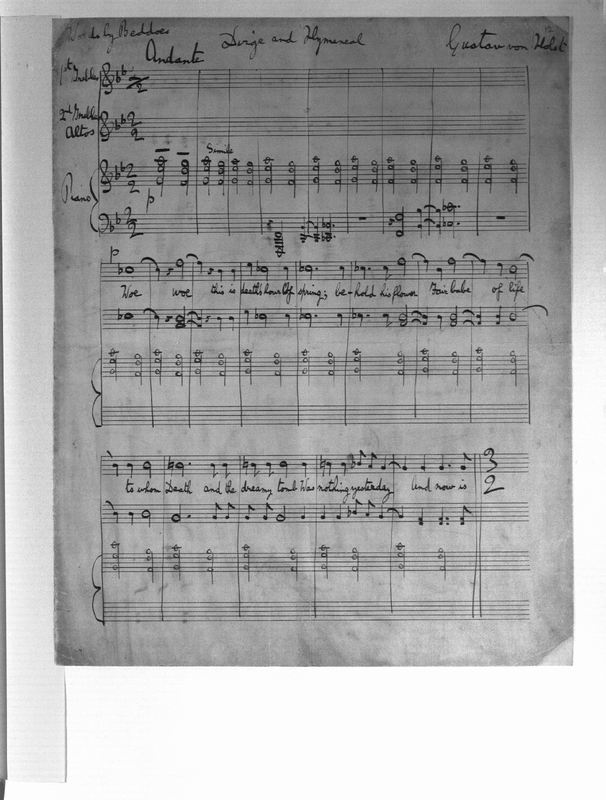 Words by Beddoes
Dirge and Hymeneal
Gustav von Holst
Andante
1st Trebles
2nd Trebles
Altos
Simile
Piano
p
p
Woe woe this is death's hour Of spring; be-hold his flower Fair babe of life
to whom Death and the dreamy tomb Was nothing yesterday And now is
3
2